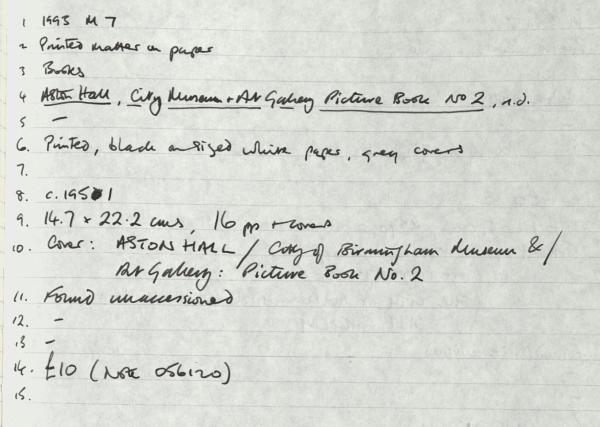 1 1993 M 7
2 Printed matter on paper
3 Books
4 Aston Hall, City Museum + Art Gallery Picture Book No 2, n.d.
5 —
6. Printed, black on sized white paper, grey covers
7.
8. c.1951
9. 14.7 × 22.2 cms, 16 pp + covers
10. Cover: ASTON HALL / City of Birmingham Museum & /
Art Gallery: Picture Book No. 2
11. Found unaccessioned
12. —
13 —
14. £10 (Note 056120)
15.